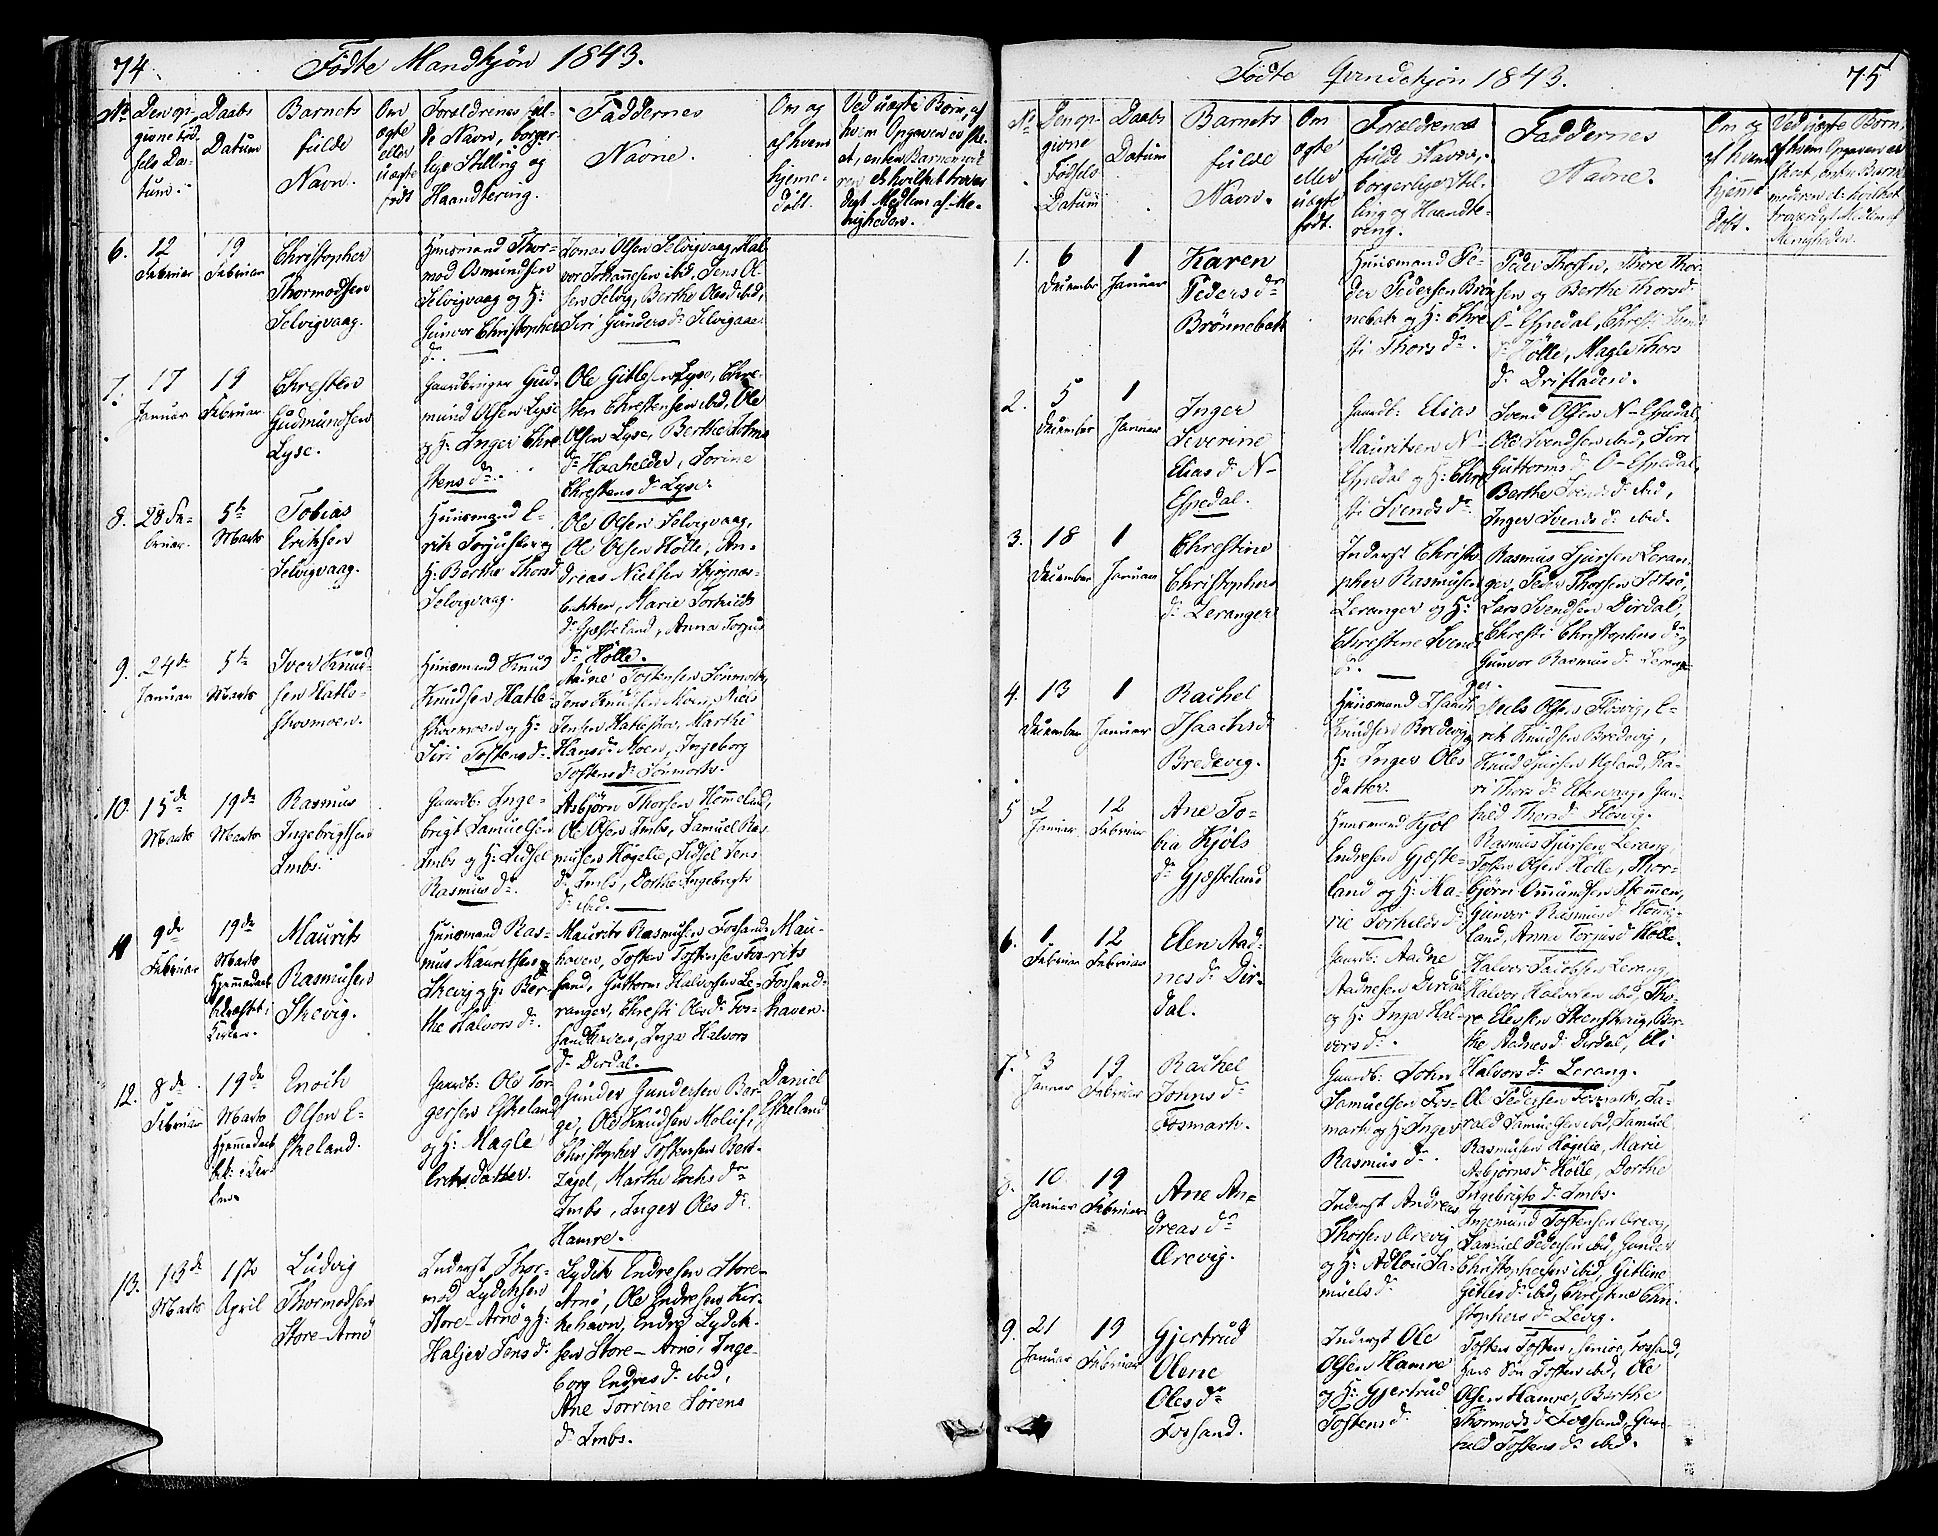 74.
Födte Mandkjön 1843.
No
Den op-
givne Föd-
sels Da-
tum.
Daabs
Datum
Barnets
fulde
Navn.
Om
ægte
eller
uægte
födt
Forældrenes ful-
de Navn, borger-
lige Stilling og
Haandtering.
Faddernes
Navne.
Om og
af hvem
hjemme-
döbt.
Ved uægte Börn, af
hvem Opgaven er ske-
et, enten Barnemode-
ren el. hvilket trovær-
digt Medlem af Me-
nigheden.
6.
12
Februar
19
Februar
Christopher
Thormodsen
Selvigvaag.
Huusmand Thor-
mod Osmundsen
Selvigvaag og H:
Gunvor Christophers
dr.
Jonas Olsen Selvigvaag, Hal-
vor Johannesen ibid, Jens Ol-
sen Selvig, Berthe Olesd. ibid,
Siri Gunders dr Selvigvaag.
7.
17
Januar
19
Februar
Chresten
Gudmundsen
Lyse.
Gaardbruger Gud-
mund Olsen Lyse
og H: Inger Chre-
stens dr.
Ole Gitlesen Lyse, Chre-
sten Chrestensen ibid, Ole
Olsen Lyse, Berthe
dr Haaheller, Torine
Chrestens dr Lyse.
8.
28 Fe-
bruar.
5te
Marts
Tobias
Eriksen
Selvigvaag.
Huusmand E-
rik Torjusen og
H: Berthe Thorsd
Selvigvaag.
Ole Olsen Selvigvaag,
Ole Olsen Hölle, An-
dreas Nielsen
bakken, Marie Torkilds
dr Gjesteland, Anna Torjus
dr Hölle.
9.
24de
Januar
5te
Marts
Iver Knud-
sen Hatle-
skovmoen.
Huusmand Knud
Knudsen Hatle-
skovmoen og H:
Siri Tostens dr.
Tostensen
Jens Knudsen Moen, Niels
Jensen Hatleskov, Marthe
Hans dr Moen, Ingeborg
Tostens dr
10.
15de
Marts
19de
Marts
Rasmus
Ingebrigtsen
Imbs.
Gaardb. Inge-
brigt Samuelsen
Imbs og H: Sidsel
Rasmus dr.
Asbjörn Thorsen Hommeland,
Ole Olsen Imbs, Samuel Ras-
musen Högelie, Sidsel Jens
dr Imbs, Dorthe Ingebrigts
dr ibid.
11
9de
Februar
19de
Marts
Hjemmedaab
bekræftet i
Kirken.
Maurits
Rasmusen
Skevig.
Huusmand Ras-
mus Mauritsen
Skevig og H: Ber-
the Halvors dr.
Maurits Rasmusen Fossand-
haven, Tosten Tostensen Fos-
sand, Guttorm Halvorsen Le-
ranger, Chresti Oles dr Fos-
sand, Inga Halvors
dr Dirdal.
Mau-
rits
Fossand-
haven.
12.
8de
Februar
19de
Marts
Hjemmedaab
bek: i Kir-
ken.
Enoch
Olsen E-
skeland.
Gaardb: Ole Tor-
gersen Eskeland
og H: Magle
Eriksdatter.
Gunder Gundersen Ber-
ge, Ole Knudsen
Christopher Tostensen
Marthe Eriks dr
Imbs, Inger Oles dr
Hamre.
Daniel
Eskeland
13.
13de
Marts
1ste
April
Ludvig
Thormodsen
Store-Arnö
Inderst Thor-
mod Lydiksen
Store-Arnö og H:
Jens dr
Lydik Endresen Store-
Arnö, Ole Endresen Kir-
kehavn, Endre Lydik-
sen Store-Arnö, Inge-
borg Endres dr ibid,
Ane Torrine Sörens
dr Imbs.
Födte Qvindekjön 1843.
75
No
Den op-
givne
Födsels
Datum
Daabs
Datum
Barnets
fulde
Navn.
Om
ægte
eller
uægte
födt.
Forældrenes
fulde Navn,
borgerlige Stil-
ling og Haandte-
ring.
Faddernes
Navne.
Om og
af hvem
hjemme
döbt.
Ved uægte Börn,
af hvem Opgaven er
skeet, enten Barne-
moderen el. hvilket
troværdigt Medlem af
Menigheden.
1.
6
December
1
Januar
Karen
Peders dr
Brönnebak
Huusmand Pe-
der Pedersen Brön-
nebak og H: Chre-
sti Thors dr.
Peder Thorsen, Thore Thor-
sen og Berthe Thors dr
O-Espedal, Chresti Svends
dr Hölle, Magle Thors
dr Driftladen.
2.
5
December
1
Januar
Inger
Severine
Elias dr N-
Espedal.
Gaardb: Elias
Mauritsen N-
Espedal og H: Chre-
sti Svends dr
Svend Olsen N-Espedal,
Ole Svendsen ibid, Siri
Guttorms dr O-Espedal,
Berthe Svends dr ibid,
Inger Svends dr ibid.
3.
18
December
1
Januar
Chrestine
Christophers
dr Leranger
Inderst Christo-
pher Rasmusen
Leranger og H:
Chrestine Svends
dr.
Rasmus Sjursen Leran-
ger, Peder Thorsen
Lars Svendsen Dirdal,
Chresti Christophers dr og
Gunvor Rasmus dr Leran-
ger.
4.
13
December
1
Januar
Rachel
Isaachs dr
Bredevig.
Huusmand Isaach
Knudsen Bredevig og
H: Inger Oles
datter.
Niels Olsen Flösvig, E-
rik Knudsen Bredevig,
Knud Sjursen Myland, Ka-
ri Thors dr Eltervaag, Gun-
hild Thors dr Flösvig.
5
2
Januar
12
Februar
Ane To-
bia Kjöls
dr Gjesteland
Huusmand Kjöl
Endresen Gjeste-
land og H: Ma-
rie Torkilds dr
Rasmus Sjursen Lerang,
Tosten Olsen Hölle, Thor-
björn Omundsen
Gunvor Rasmus dr
land, Anna Torjus dr Hölle.
6.
1
Februar
12
Februar
Elen Aad-
nes dr Dir-
dal.
Gaardb: Aadne
Aadnesen Dirdal
og H: Inga Hal-
vors dr.
Halvor Jacobsen Lerang,
Halvor Halvorsen ibid, Tho-
re Elevsen Ber-
the Aadnes dr Dirdal, Eli
Halvors dr Lerang.
7.
3
Januar
19
Februar
Rachel
Johns dr
Fosmark.
Gaardb: John
Samuelsen Fos-
mark og H: Inger
Rasmus dr.
Ole Pedersen Fosmark, Ta-
rald Samuelsen ibid, Samuel
Rasmusen Högelie, Marie
Asbjörns dr Hölle, Dorthe
Ingebrigts dr Imbs.
8.
10.
Januar
19
Februar
Ane An-
dreas dr
Ørevig.
Inderst Andreas
Thorsen Ørevig
og H: Sa-
muels dr
Ingemund Tostensen Ørevig,
Samuel Pedersen ibid, Gunder
Christophersen ibid, Gitline
Gitles dr ibid, Chrestine Chri-
stophers dr Levig.
9.
21
Januar
19
Februar
Gjertrud
Olene
Oles dr
Fossand.
Inderst Ole
Olsen Hamre
og H: Gjertrud
Tostens dr
Tosten Tostensen Fossand,
Tosten ibid, Ole
Olsen Hamre, Berthe
Thormods dr Fossand, Gun-
hild Tostens dr ibid.